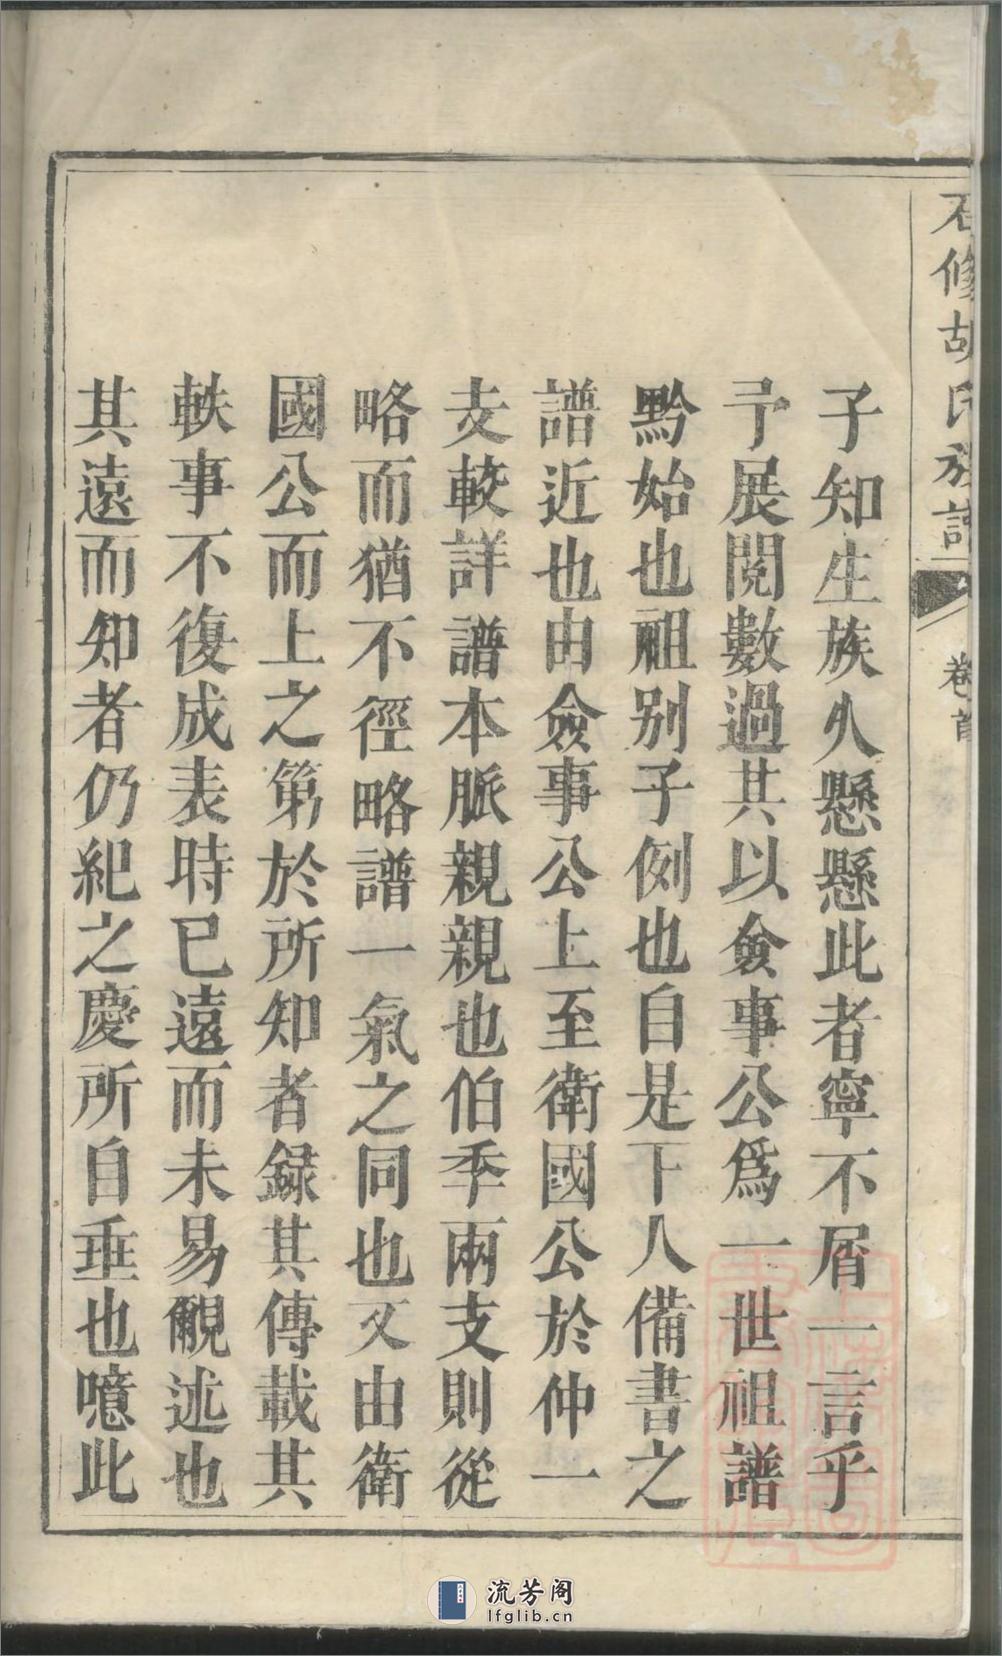 石修胡氏族譜
卷首
子知生族久懸懸此者寧不屑一言乎
予展閱數過其以僉事公爲一世祖譜
黔始也祖别子例也自是下人備書之
譜近也由僉事公上至衛國公於仲一
支較詳譜本脈親親也伯季兩支則從
略而猶不徑略譜一氣之同也又由衛
國公而上之第於所知者録其傳載其
軼事不復成表時已遠而未易覼述也
其遠而知者仍紀之慶所自垂也噫此
流芳阁
lfglib.cn